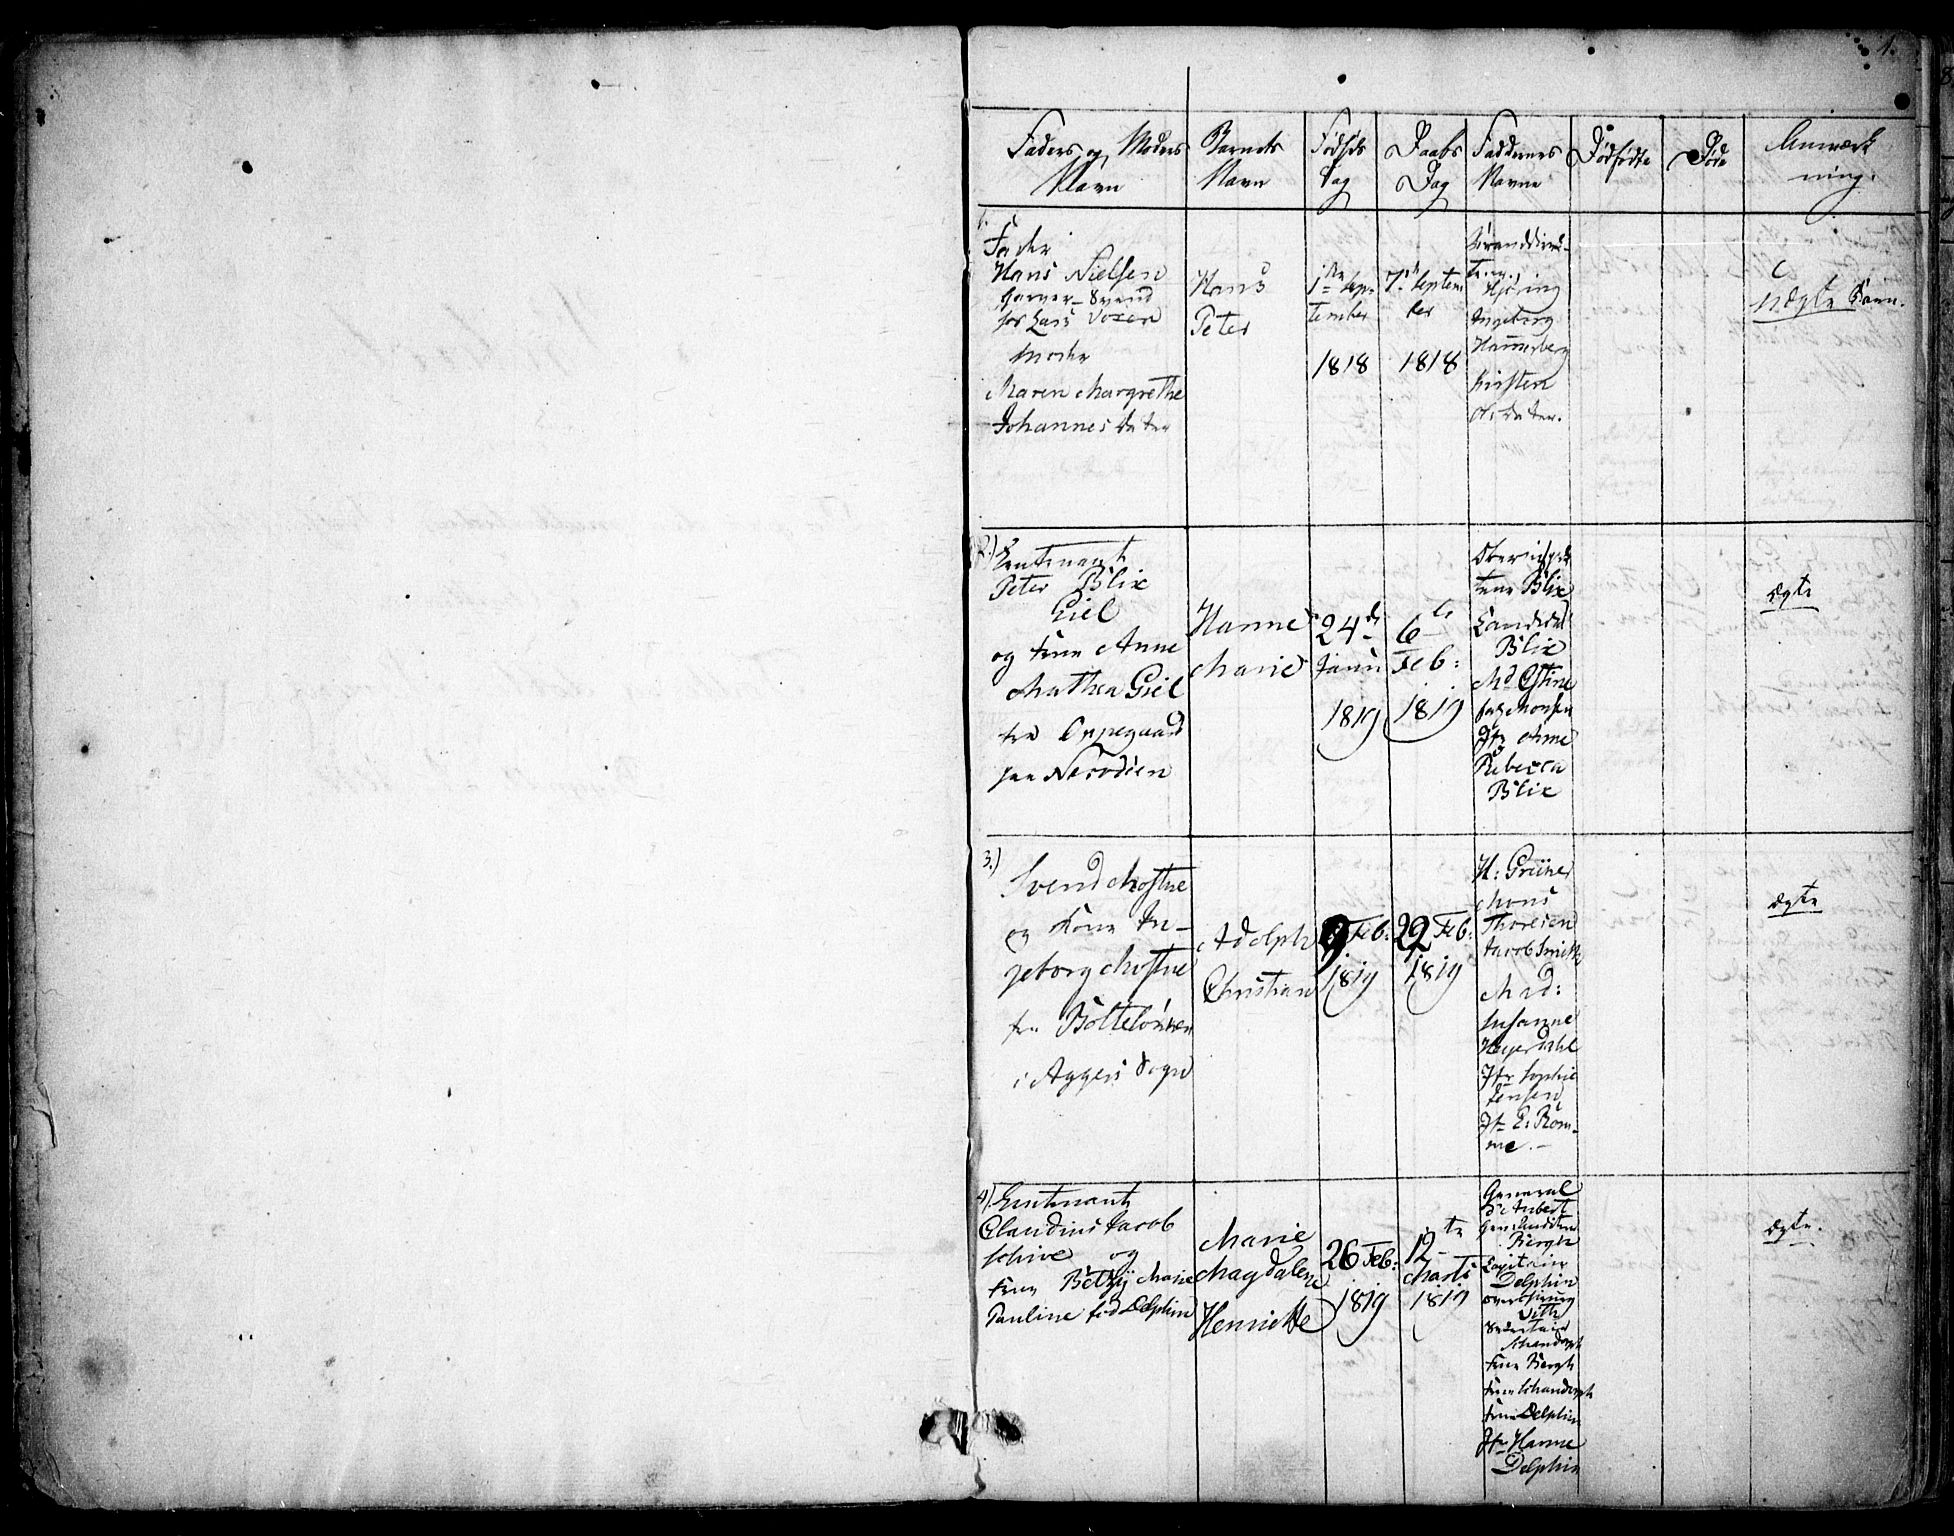 1.
Faders og Moders
Navn
Barnets
Navn
Fødsels
Dag
Daabs
Dag
Faddernes
Navne
Dødfødte
Døde
Anmærk
ning.
1.
Fader
Hans Nielsen
Garver-Svend
hos Lars
Moder
Maren Margrethe
Johannesdatter
Hans
Peter
1ste Sep-
tember
1818
7de Septem
ber
1818
Hjöring
Ingeborg
Hammerberg
Kirsten
Olsdatter.
Uægte Barn.
2.)
Lieutenant
Peter Blix
Giel
og Frue Anne
Mathea Giel
fra Oppegaard
paa Næsodden
Hanne
Marie
24de
Janu
1819
6te
Feb:
1819
Blix
Candidat
Blix
Md Stine
Monsen
Jfr Anne
Rebecca
Blix
ægte
3.)
Svend Mostue
og Kone In-
geborg Mostue
fra Bölteløkken
i Aggers Sogn
Adolph
Christian
9 Feb:
1819
22 Feb:
1819
H: Grüner
Mons
Thoresen
Jacob Smith
Mad:
Susanne
Heyerdahl
Jfr Sophie
Jensen
Jfr E: Rom-
me.-
ægte
4).
Lieutenant
Claudius Jacob
Schive og
Frue Betzÿ Marie
Pauline fød Delphin
Marie
Magdalene
Henriette
26 Feb:
1819
12te
Marts
1819
General
De Aubert
Bergh
Capitain
Delphin
Secretair
Frue Bergh
Frue Delphin
Jfr Hanne
Delphin
ægte.